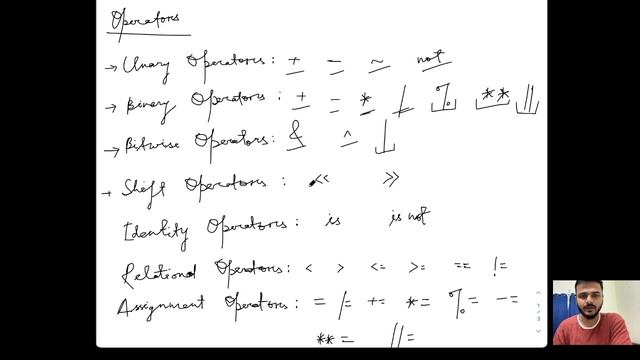 Operators
→ Unary Operators: + - ~ not
→ Binary Operators: + - * / % ** //
→ Bitwise Operators: & ^ |
→ Shift Operators: << >>
Identity Operators: is is not
Relational Operators: < > <= >= == !=
Assignment Operators: = /= += *= %= -=
**= //=
1/3